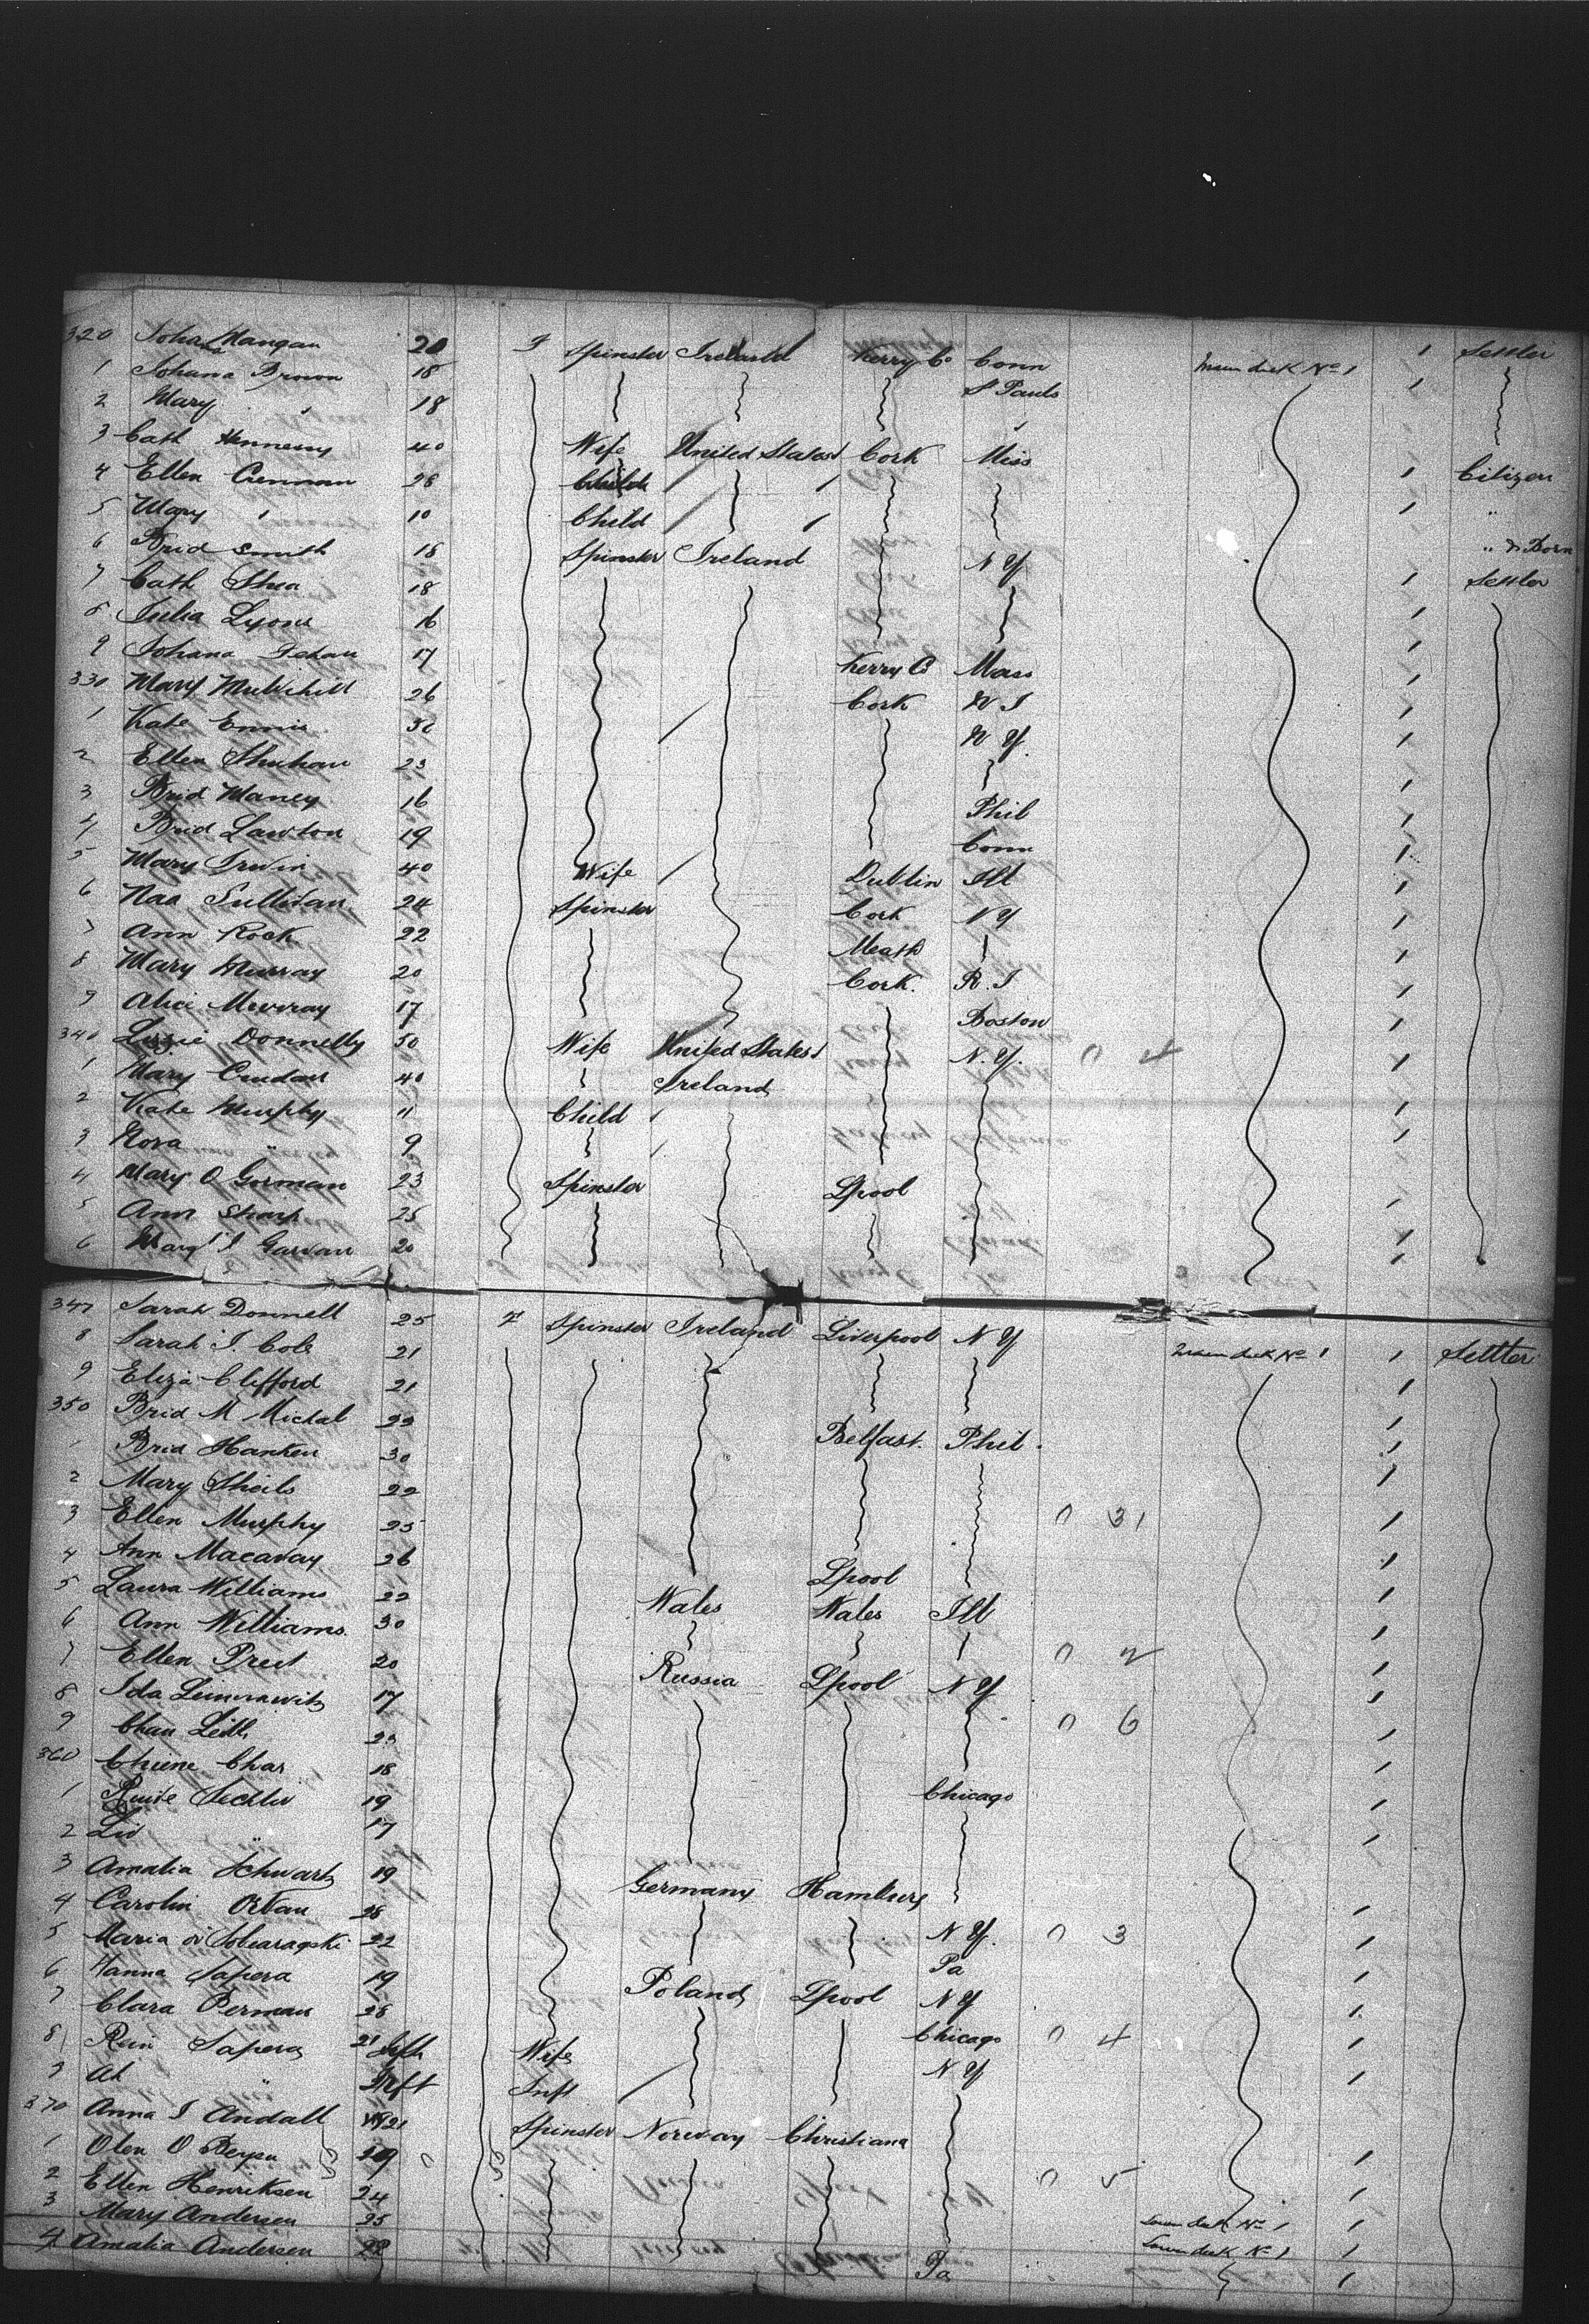 320 Johana Mangan 20 F Spinster Ireland Kerry Co Conn Main deck No 1 1 Settler
1 Johana Brown 18 St Pauls 1
2 Mary " 18 "
3 Cath Hennessy 40 Wife United States Cork Miss 1 Citizen
4 Ellen Crennan 28 Child 1 "
5 Mary " 10 Child " & Born
6 Brid Smith 18 Spinster Ireland N Y 1 Settler
7 Cath Shea 18 1
8 Julia Lyons 16 1
9 Johana 17 Kerry Co Mass 1
330 Mary Mulvihill 26 Cork N J 1
1 Kate Ennis N Y. 1
2 Ellen Shuhan 23 1
3 Brid Maney 16 Phil 1
4 Brid Lawton 19 Conn 1
5 Mary Irwin 40 Wife Dublin Ill 1
6 Naa Sullivan 24 Spinster Cork N Y 1
7 Ann Rock 22 Meath 1
8 Mary Murray 20 Cork. R. I 1
9 Alice Murray 17 Boston 1
340 Lizzie Donnelly 50 Wife United States N. Y. 1
1 Mary 40 Ireland
2 Kate Murphy 11 Child 1
3 Nora " 9 1
4 Mary O Gorman 23 Spinster Lpool
5 Ann Sharp 25 1
6 Margt J Garvan 20 1
347 Sarah Donnell 25 F Spinster Ireland Liverpool N Y 1 Settler
8 Sarah J. Cole 21 1
9 Eliza Clifford 21 1
350 Brid M Michal 22 Belfast. Phil. 1
1 Brid Hanken 30 1
2 Mary Sheils 22
3 Ellen Murphy 25 0 31 1
4 Ann Macavay 26 1
5 Laura Williams 22 Lpool 1
6 Ann Williams. 30 Wales Wales Ill 1
7 Ellen 20 1
8 Ida 17 Russia Lpool N Y 1
9 Chan Leith 0 6 1
360 Chiene Char 18 1
1 Sechler 19 Chicago 1
2 " 17 1
3 Amalia Schwartz 19
4 Carolin 28 Germany Hamburg 1
5 Maria 22 N Y. 0 3 1
6 Hanna Sapera 19 Pa 1
7 Clara Perman 28 Poland Lpool N Y 1
8 Sapera 21 Wife Chicago 0 4 1
9 " Inft Inft N Y 1
370 Anna J Andall 21 Spinster Norway Christiana
1 Olen O 1
2 Ellen Henriksen 24 0 5 1
3 Mary Andersen 25 Lower deck No 1 1
4 Amalia Andersen 22 Pa Lower deck No 1 1